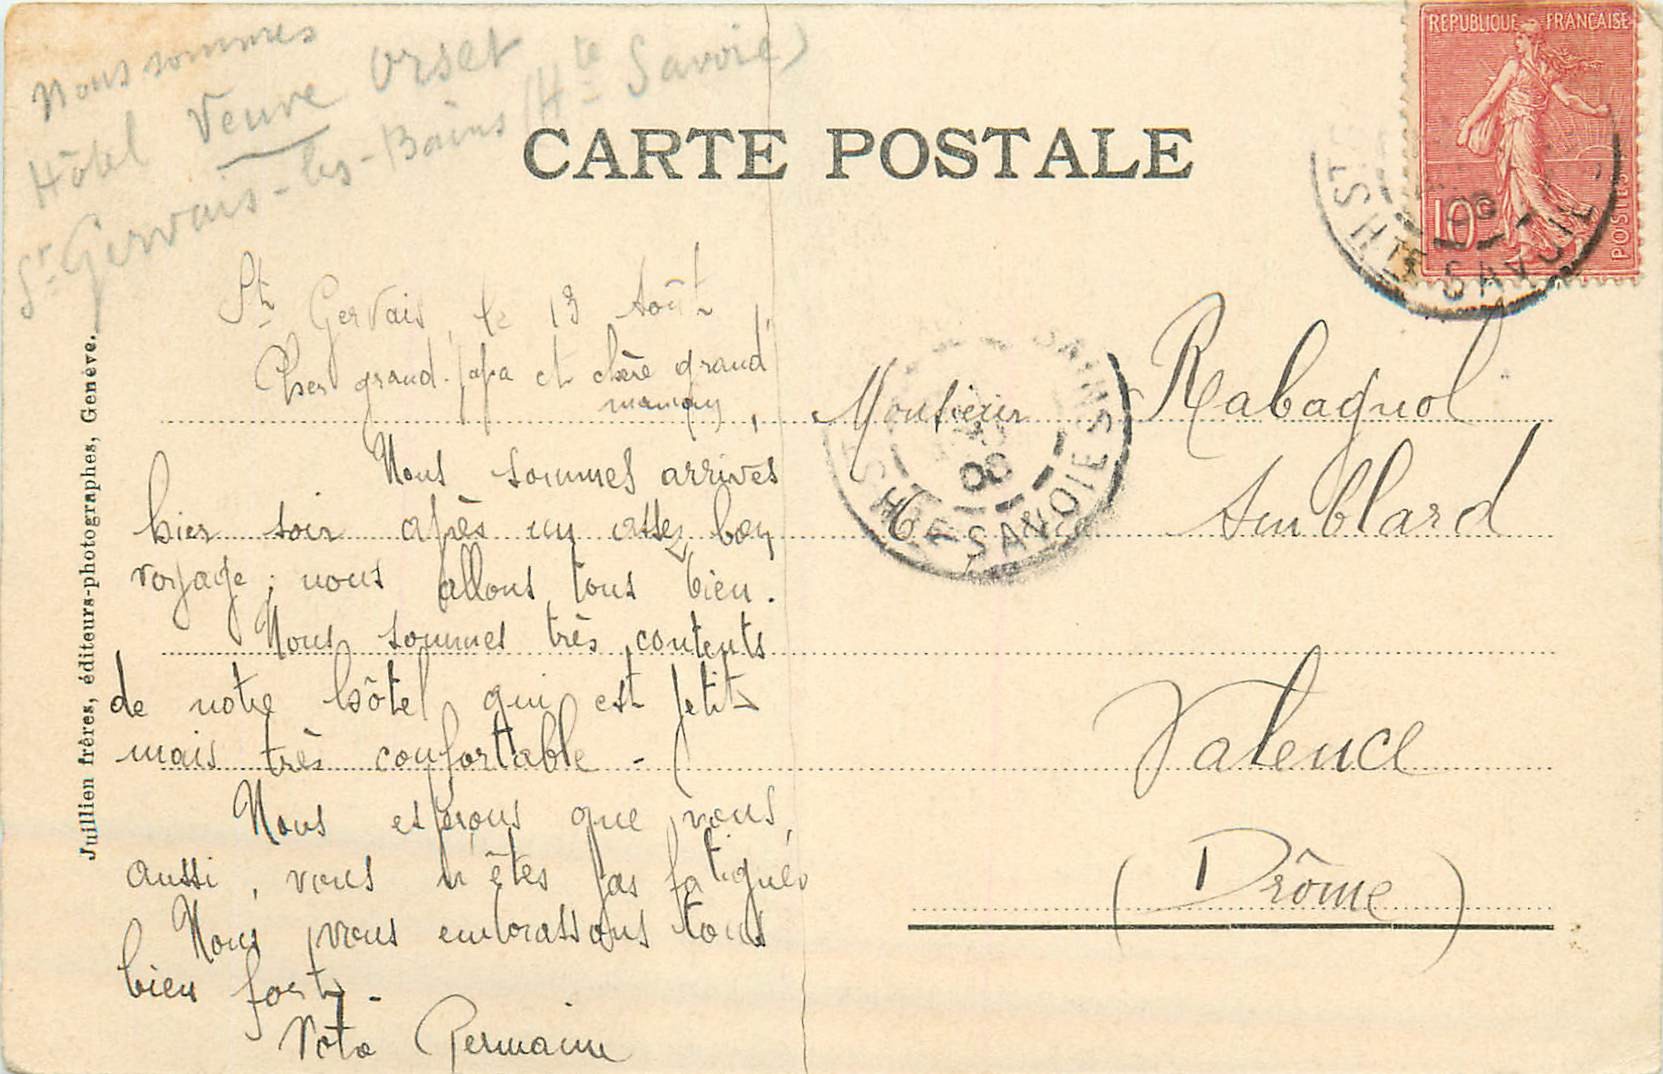 Nous sommes
Hôtel Veuve Orset
St Gervais-les-Bains (Hte Savoie)
CARTE POSTALE
REPUBLIQUE FRANÇAISE
10c
POSTES
HTE SAVOIE
St Gervais, le 13 Août
Cher grand-papa et chère grand'
maman,
Nous sommes arrivés
hier soir après un assez bon
voyage ; nous allons tous bien.
Nous sommes très contents
de notre hôtel qui est petit
mais très confortable -
Nous espérons que vous,
aussi, vous n'êtes pas fatigués
Nous vous embrassons tous
bien fort. -
Votre Germaine
BAINS
HTE SAVOIE
Monsieur Rabagnol
Amblard
Valence
(Drôme)
Juillien frères, éditeurs-photographes, Genève.